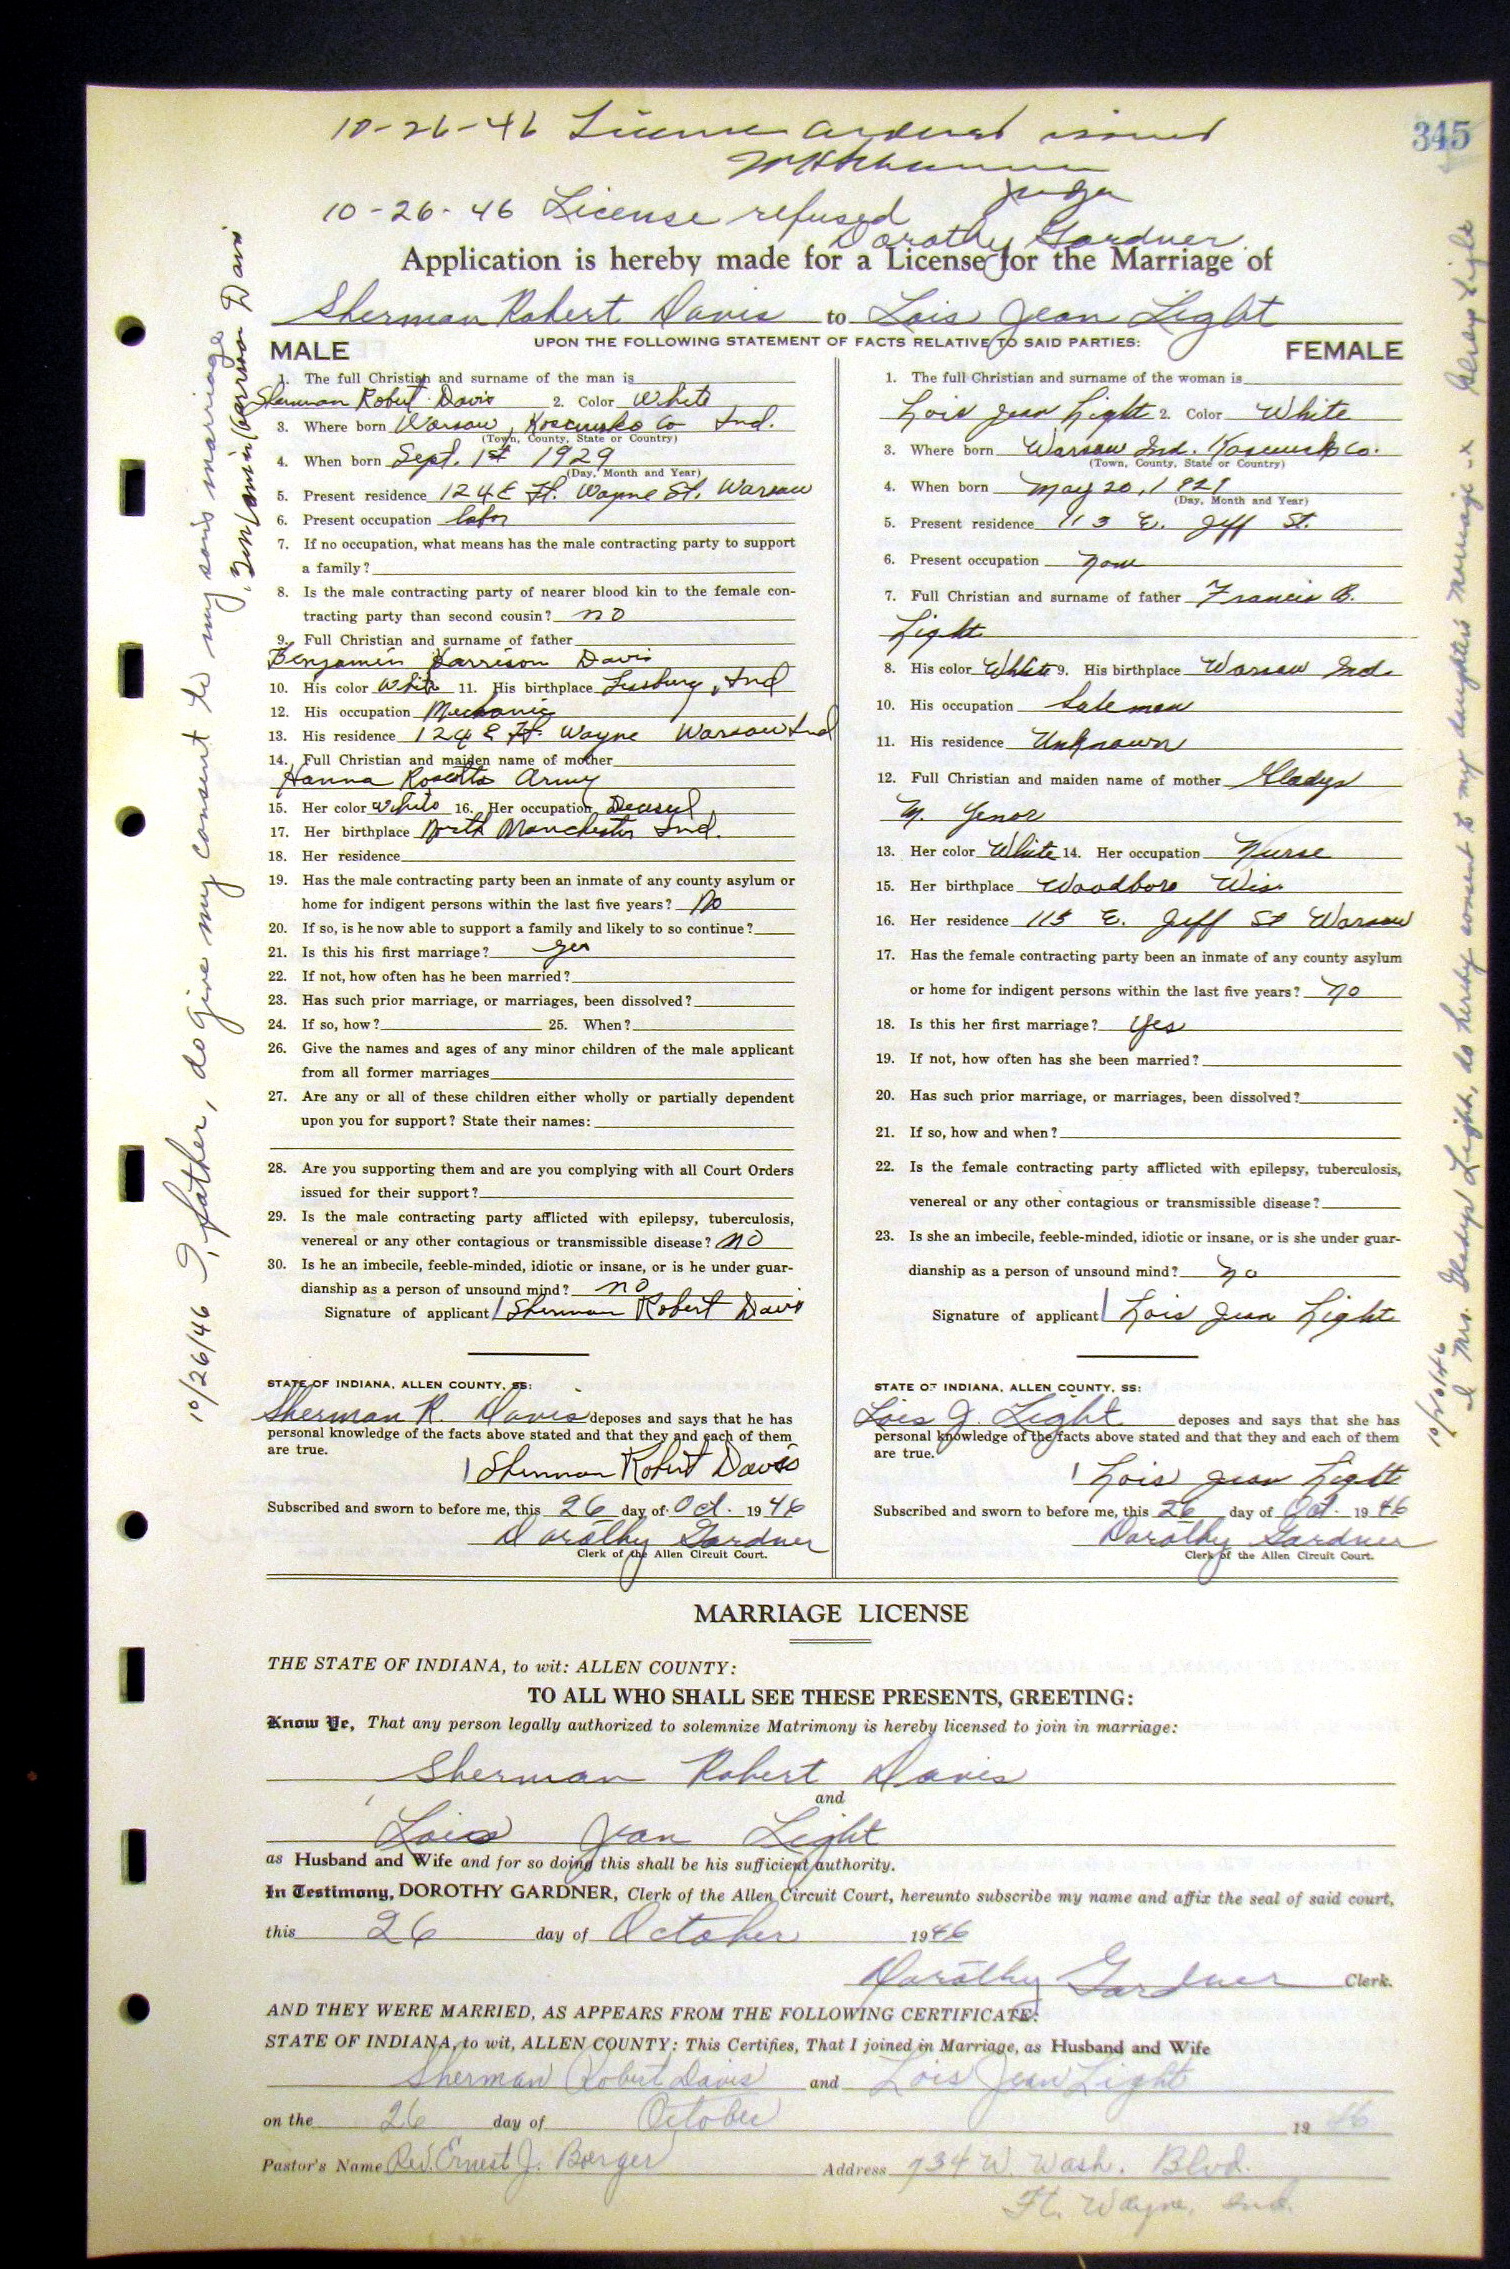 345
10-26-46 License ordered issued
Judge
10-26-46 License refused
Dorothy Gardner
Application is hereby made for a License for the Marriage of
Sherman Robert Davis to Lois Jean Light
UPON THE FOLLOWING STATEMENT OF FACTS RELATIVE TO SAID PARTIES:
MALE
1. The full Christian and surname of the man is
Sherman Robert Davis 2. Color White
3. Where born Warsaw, Kosciusko Co Ind.
(Town, County, State or Country)
4. When born Sept. 1st 1929
(Day, Month and Year)
5. Present residence 124 E Ft. Wayne St. Warsaw
6. Present occupation labor
7. If no occupation, what means has the male contracting party to support
a family?
8. Is the male contracting party of nearer blood kin to the female con-
tracting party than second cousin? no
9. Full Christian and surname of father
Benjamin Harrison Davis
10. His color White 11. His birthplace Leesburg, Ind
12. His occupation Mechanic
13. His residence 124 E Ft. Wayne Warsaw Ind
14. Full Christian and maiden name of mother
Hanna Army
15. Her color White 16. Her occupation Deceased
17. Her birthplace North Manchester Ind.
18. Her residence
19. Has the male contracting party been an inmate of any county asylum or
home for indigent persons within the last five years? No
20. If so, is he now able to support a family and likely to so continue?
21. Is this his first marriage? yes
22. If not, how often has he been married?
23. Has such prior marriage, or marriages, been dissolved?
24. If so, how? 25. When?
26. Give the names and ages of any minor children of the male applicant
from all former marriages
27. Are any or all of these children either wholly or partially dependent
upon you for support? State their names:
28. Are you supporting them and are you complying with all Court Orders
issued for their support?
29. Is the male contracting party afflicted with epilepsy, tuberculosis,
venereal or any other contagious or transmissible disease? no
30. Is he an imbecile, feeble-minded, idiotic or insane, or is he under guar-
dianship as a person of unsound mind? no
Signature of applicant Sherman Robert Davis
STATE OF INDIANA, ALLEN COUNTY, SS:
Sherman R. Davis deposes and says that he has
personal knowledge of the facts above stated and that they and each of them
are true.
Sherman Robert Davis
Subscribed and sworn to before me, this 26 day of Oct. 1946
Dorothy Gardner
Clerk of the Allen Circuit Court.
FEMALE
1. The full Christian and surname of the woman is
Lois Jean Light 2. Color White
3. Where born Warsaw Ind. Kosciusko Co.
(Town, County, State or Country)
4. When born May 20, 1929
(Day, Month and Year)
5. Present residence 113 E. Jeff St.
6. Present occupation None
7. Full Christian and surname of father Francis B.
Light
8. His color White 9. His birthplace Warsaw Ind.
10. His occupation Salesman
11. His residence Unknown
12. Full Christian and maiden name of mother Gladys
M. Yenor
13. Her color White 14. Her occupation Nurse
15. Her birthplace Woodboro Wis.
16. Her residence 113 E. Jeff St Warsaw
17. Has the female contracting party been an inmate of any county asylum
or home for indigent persons within the last five years? no
18. Is this her first marriage? Yes
19. If not, how often has she been married?
20. Has such prior marriage, or marriages, been dissolved?
21. If so, how and when?
22. Is the female contracting party afflicted with epilepsy, tuberculosis,
venereal or any other contagious or transmissible disease?
23. Is she an imbecile, feeble-minded, idiotic or insane, or is she under guar-
dianship as a person of unsound mind? no
Signature of applicant Lois Jean Light
STATE OF INDIANA, ALLEN COUNTY, SS:
Lois J. Light deposes and says that she has
personal knowledge of the facts above stated and that they and each of them
are true.
Lois Jean Light
Subscribed and sworn to before me, this 26 day of Oct. 1946
Dorothy Gardner
Clerk of the Allen Circuit Court.
10/26/46 I, father, do give my consent to my son's marriage
Benjamin Harrison Davis
10/26/46
I Mrs. Gladys Light, do hereby consent to my daughters marriage - x Gladys Light
MARRIAGE LICENSE
THE STATE OF INDIANA, to wit: ALLEN COUNTY:
TO ALL WHO SHALL SEE THESE PRESENTS, GREETING:
Know Ye, That any person legally authorized to solemnize Matrimony is hereby licensed to join in marriage:
Sherman Robert Davis
and
Lois Jean Light
as Husband and Wife and for so doing this shall be his sufficient authority.
In Testimony, DOROTHY GARDNER, Clerk of the Allen Circuit Court, hereunto subscribe my name and affix the seal of said court,
this 26 day of October 1946
Dorothy Gardner Clerk.
AND THEY WERE MARRIED, AS APPEARS FROM THE FOLLOWING CERTIFICATE:
STATE OF INDIANA, to wit, ALLEN COUNTY: This Certifies, That I joined in Marriage, as Husband and Wife
Sherman Robert Davis and Lois Jean Light
on the 26 day of October 19 46
Pastor's Name Rev. Ernest J. Boerger Address 734 W. Wash. Blvd.
Ft. Wayne, Ind.